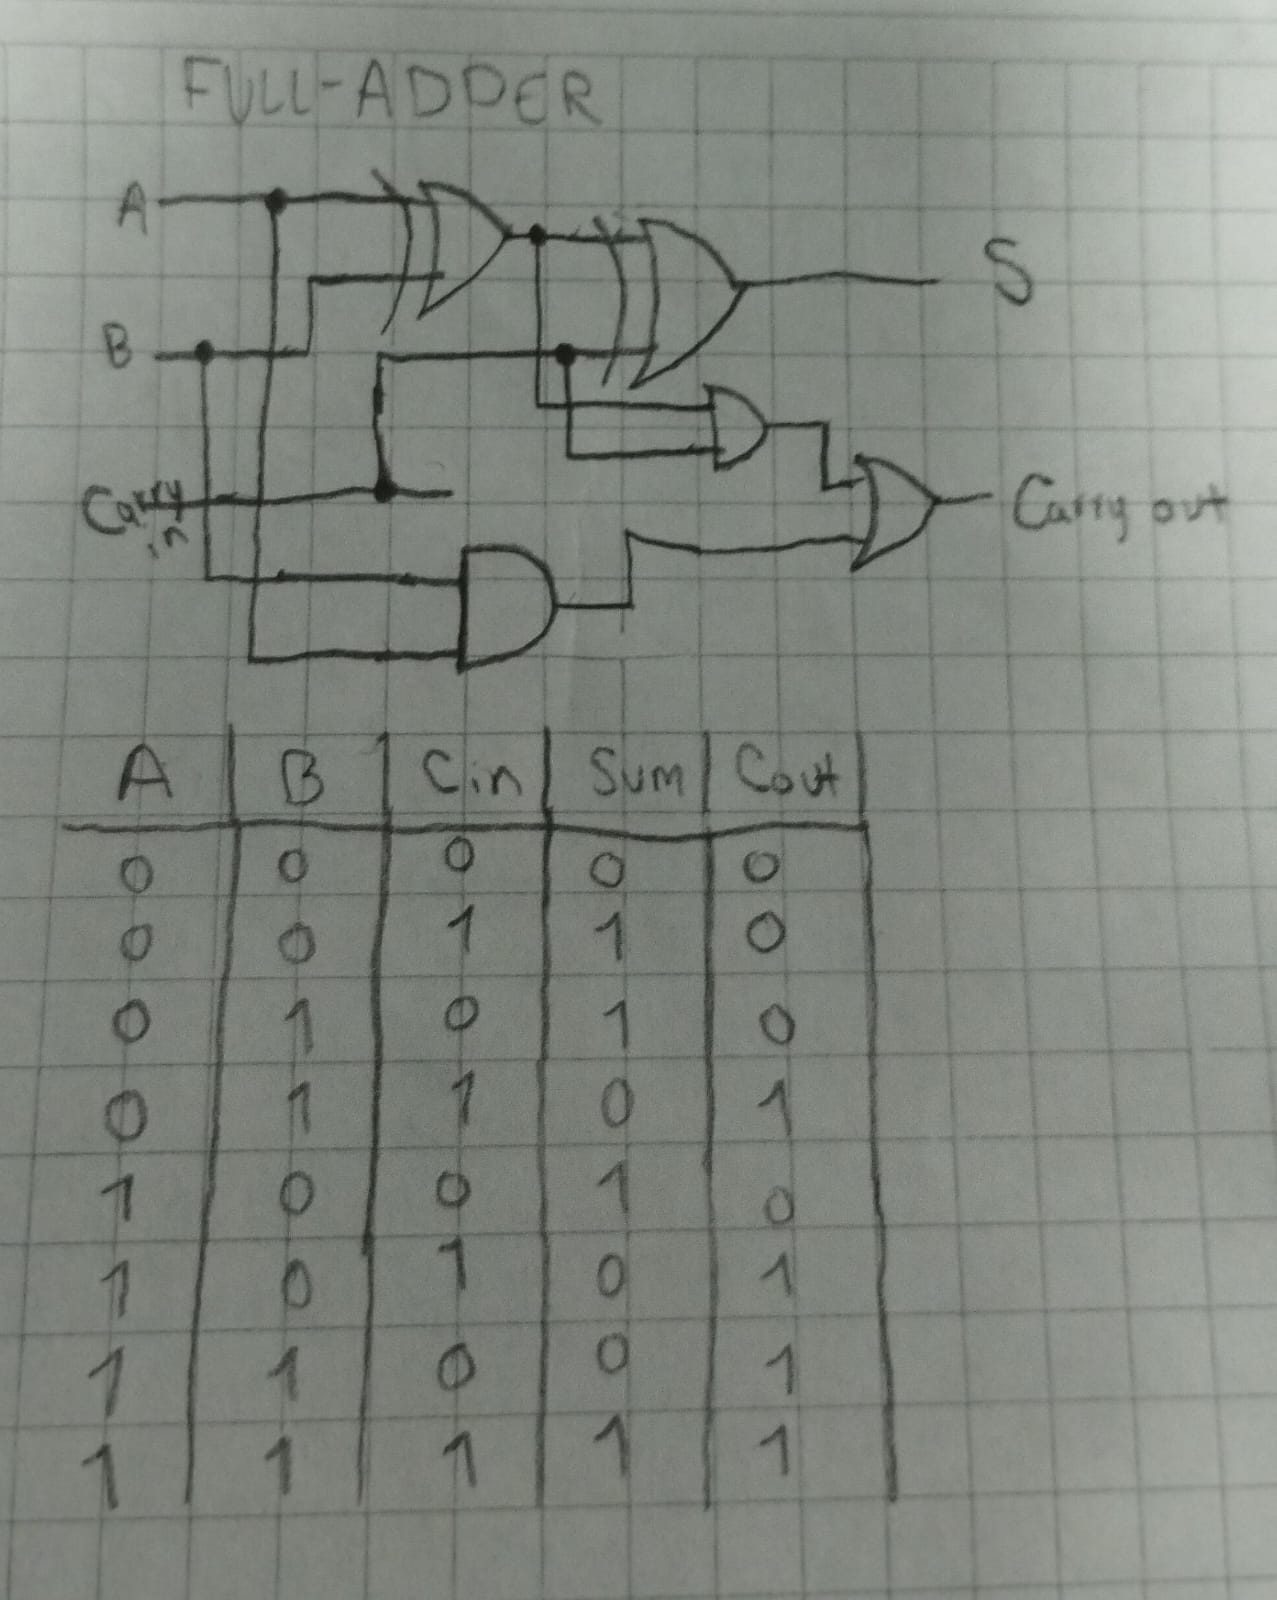 FULL-ADDER
A
S
B
Carry in
Carry out
A B Cin Sum Cout
0 0 0 0 0
0 0 1 1 0
0 1 0 1 0
0 1 1 0 1
1 0 0 1 0
1 0 1 0 1
1 1 0 0 1
1 1 1 1 1